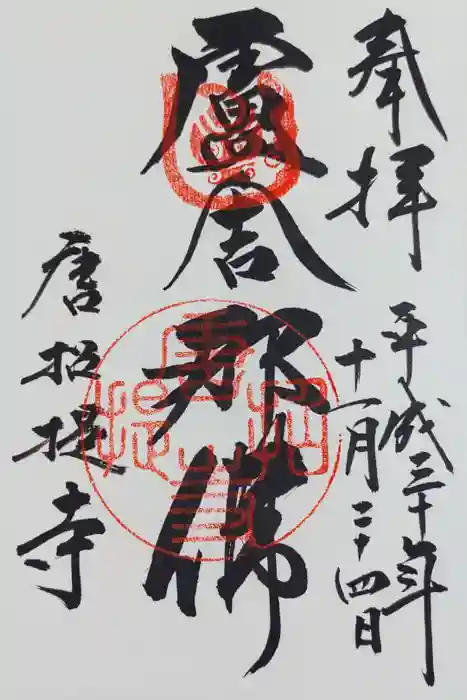 奉拝
平成三十年
十一月二十四日
盧舎那佛
唐招提寺
唐招提寺